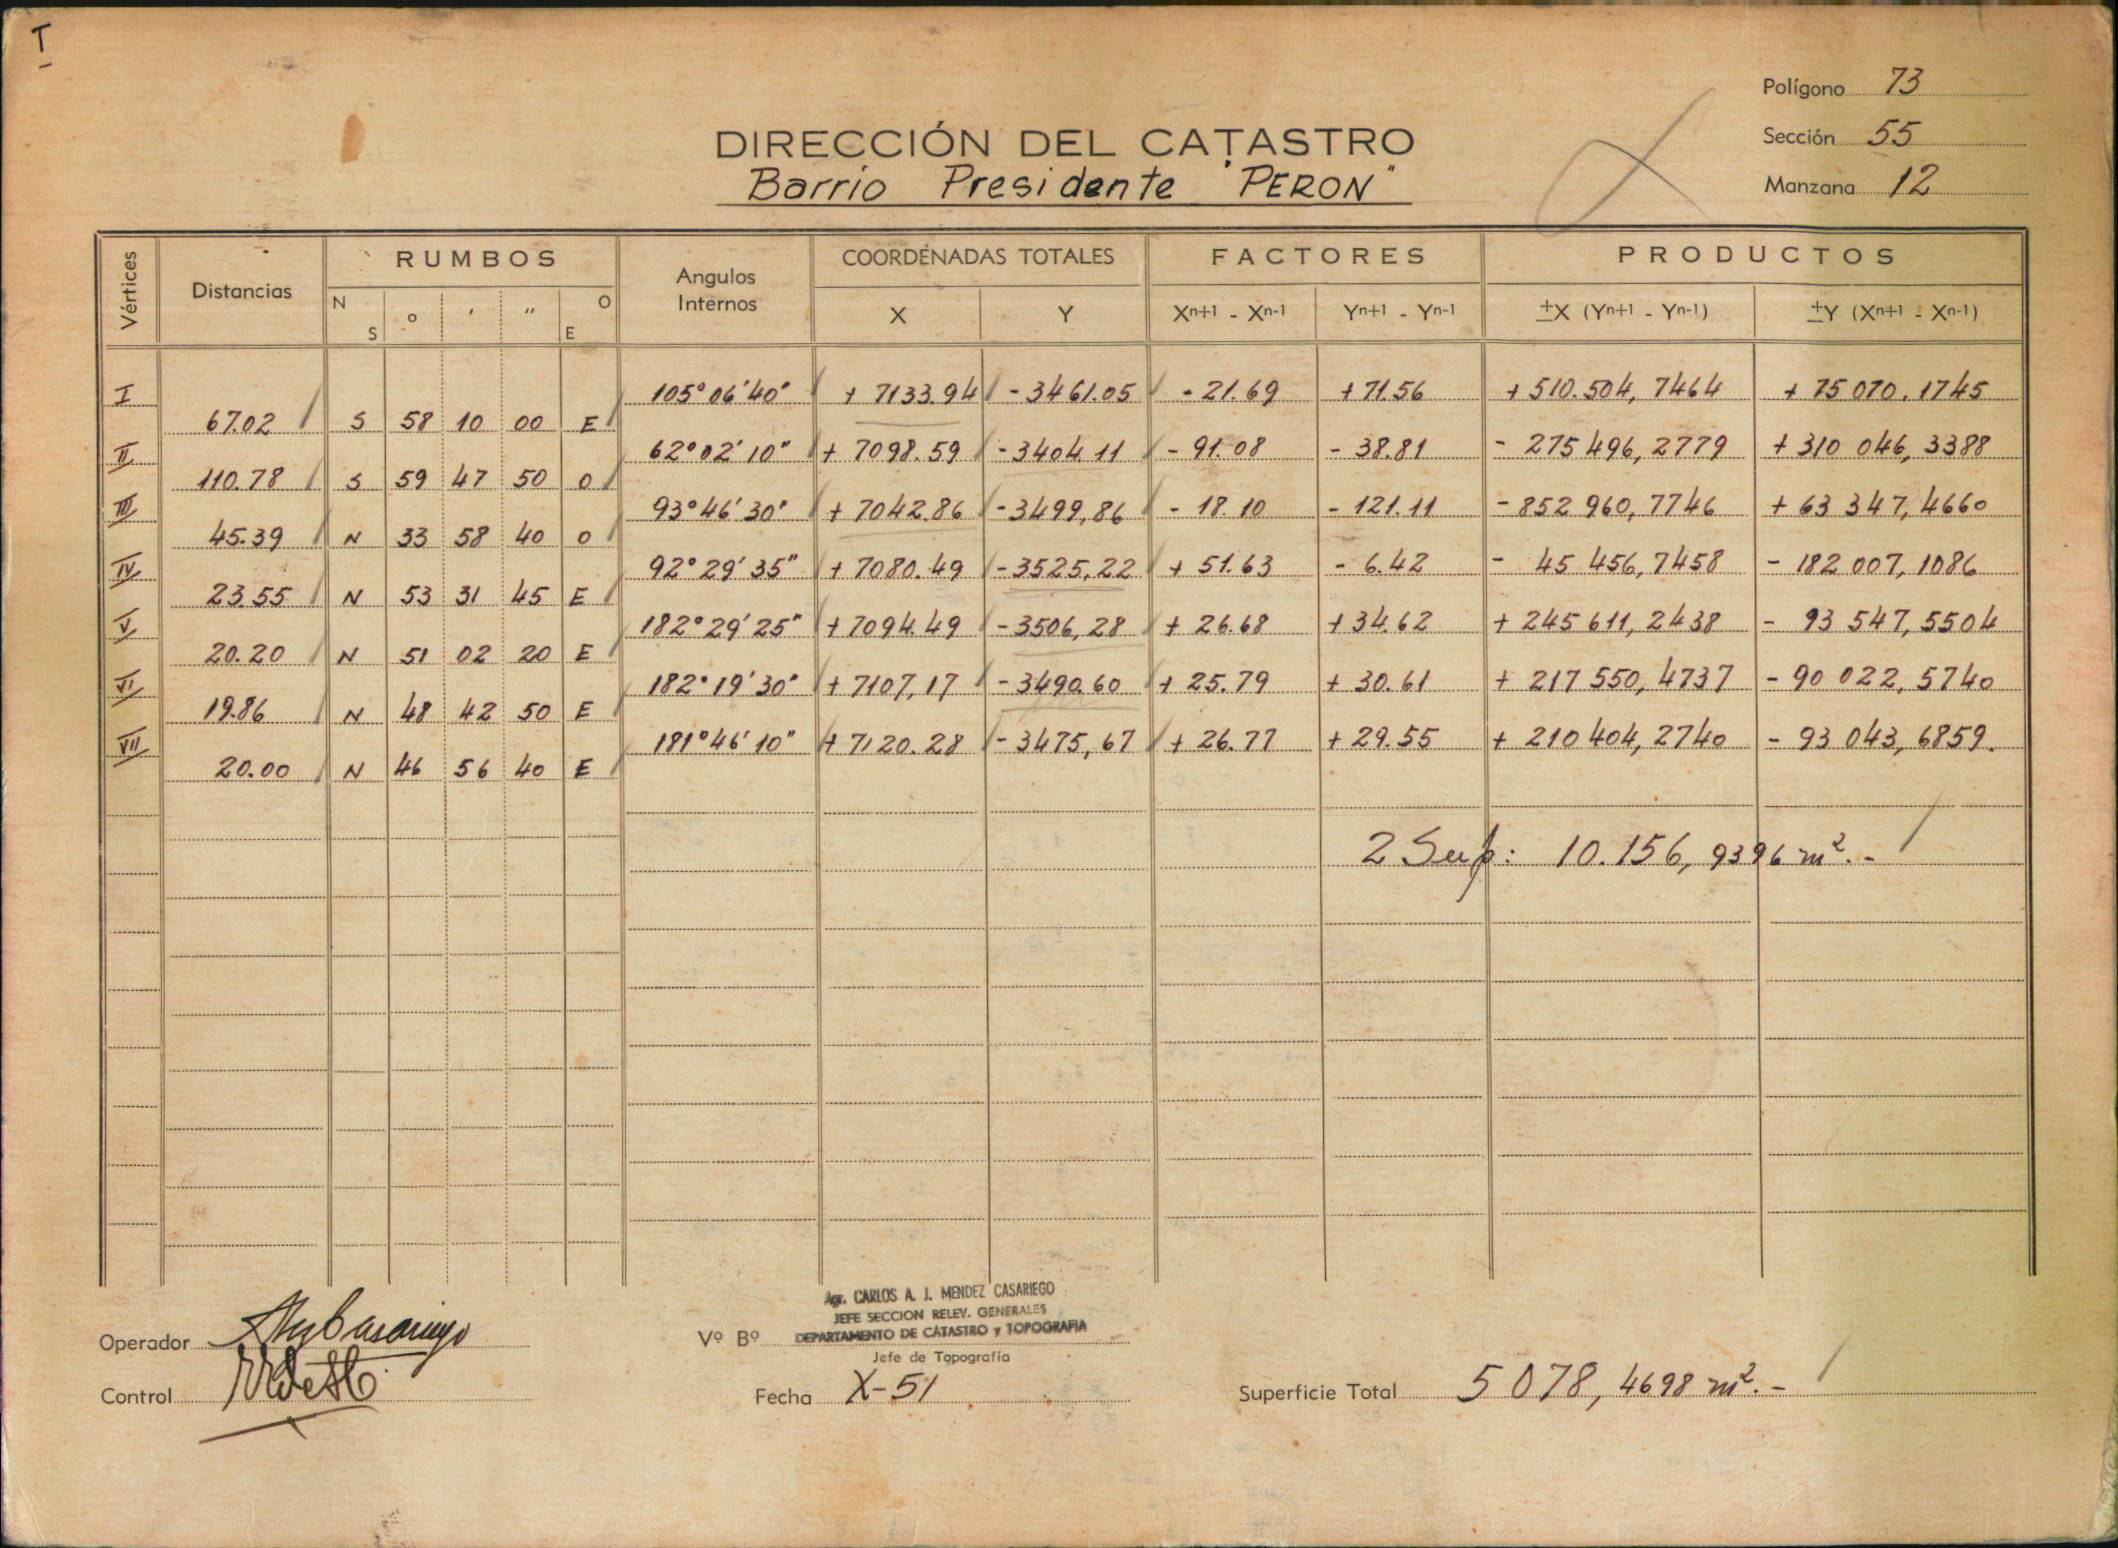 I
Polígono 73
Sección 55
Manzana 12
DIRECCIÓN DEL CATASTRO
Barrio Presidente "PERON"
Vértices Distancias RUMBOS Angulos Internos COORDENADAS TOTALES FACTORES PRODUCTOS
N S ° ' " O E X Y Xn+1 - Xn-1 Yn+1 - Yn-1 ±X (Yn+1 - Yn-1) ±Y (Xn+1 - Xn-1)
I 105°06'40" + 7133.94 - 3461.05 - 21.69 + 71.56 + 510.504, 7464 + 75 070. 1745
67.02 S 58 10 00 E
II 62°02'10" + 7098.59 - 3404.11 - 91.08 - 38.81 - 275 496, 2779 + 310 046, 3388
110.78 S 59 47 50 O
III 93°46'30" + 7042.86 - 3499,86 - 18.10 - 121.11 - 852 960, 7746 + 63 347, 4660
45.39 N 33 58 40 O
IV 92°29'35" + 7080.49 - 3525,22 + 51.63 - 6.42 - 45 456, 7458 - 182 007, 1086
23.55 N 53 31 45 E
V 182°29'25" + 7094.49 - 3506,28 + 26.68 + 34.62 + 245 611, 2438 - 93 547, 5504
20.20 N 51 02 20 E
VI 182°19'30" + 7107,17 - 3490.60 + 25.79 + 30.61 + 217 550, 4737 - 90 022, 5740
19.86 N 48 42 50 E
VII 181°46'10" + 7120.28 - 3475,67 + 26.77 + 29.55 + 210 404, 2740 - 93 043, 6859.
20.00 N 46 56 40 E
2 Sup: 10.156, 9396 m². -
Agr. CARLOS A. J. MENDEZ CASARIEGO
JEFE SECCION RELEV. GENERALES
Operador Vº Bº DEPARTAMENTO DE CATASTRO y TOPOGRAFIA
Jefe de Topografía
Control Fecha X-51 Superficie Total 5078, 4698 m². -